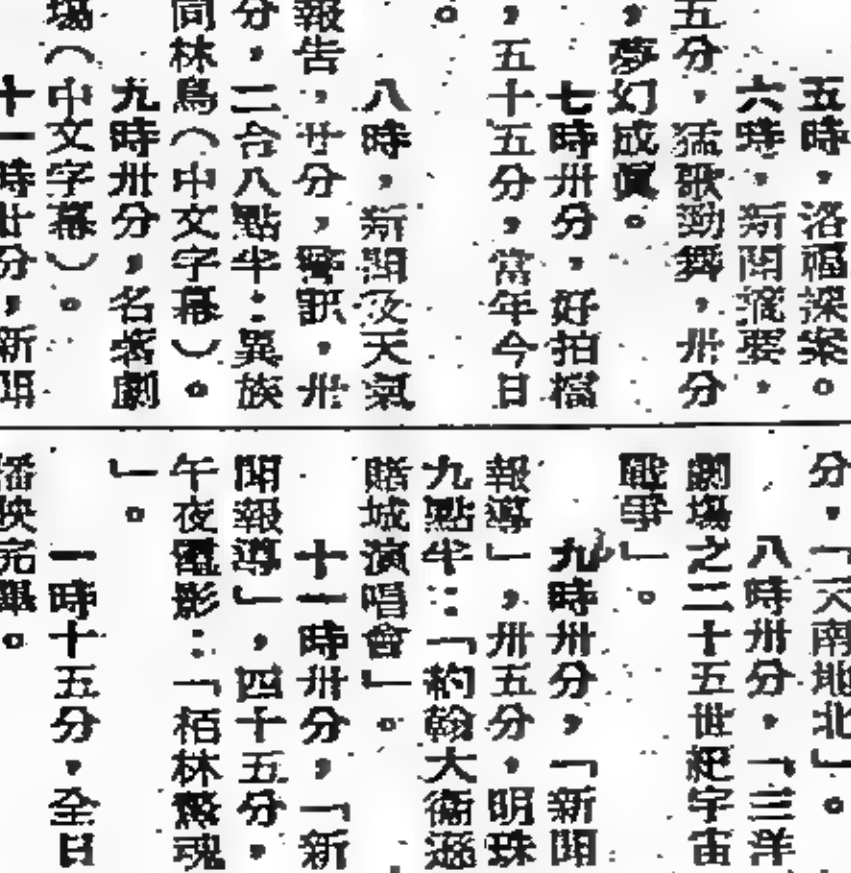 五時,洛福探案。
六時,新聞撮要,
五分,猛歌勁舞,卅分
,夢幻成眞。
七時卅分,好拍檔
,五十五分,當年今日
。
八時,新聞及天氣
報告,廿分,警訊,卅
分,二台八點半:異族
同林鳥(中文字幕)。
九時卅分,名著劇
場(中文字幕)。
十一時廿分,新聞
分,「天南地北」。
八時卅分,「三洋
劇場之二十五世紀宇宙
戰爭」。
九時卅分,「新聞
報導」,卅五分,明珠
九點半:「約翰大衞遜
賭城演唱會」。
十一時卅分,「新
聞報導」,四十五分,
午夜電影:「栢林驚魂
」。
一時十五分,全日
播映完畢。